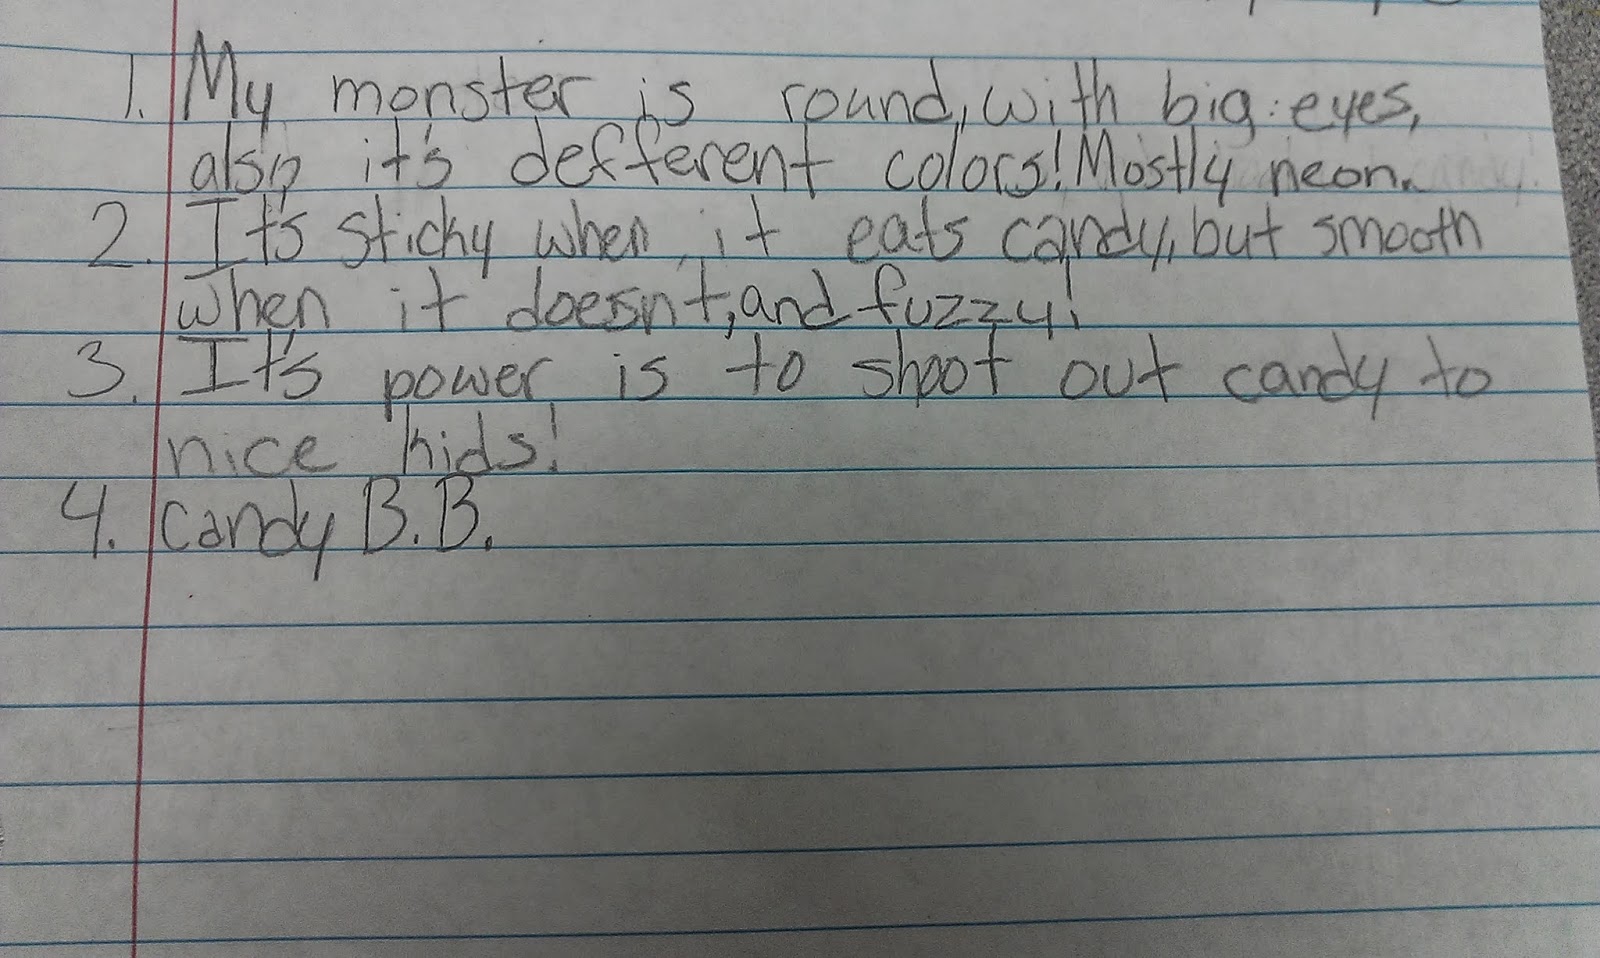 1. My monster is round, with big eyes,
also it's defferent colors! Mostly neon.
2. It's sticky when it eats candy, but smooth
when it doesn't, and fuzzy!
3. It's power is to shoot out candy to
nice kids!
4. Candy B.B.